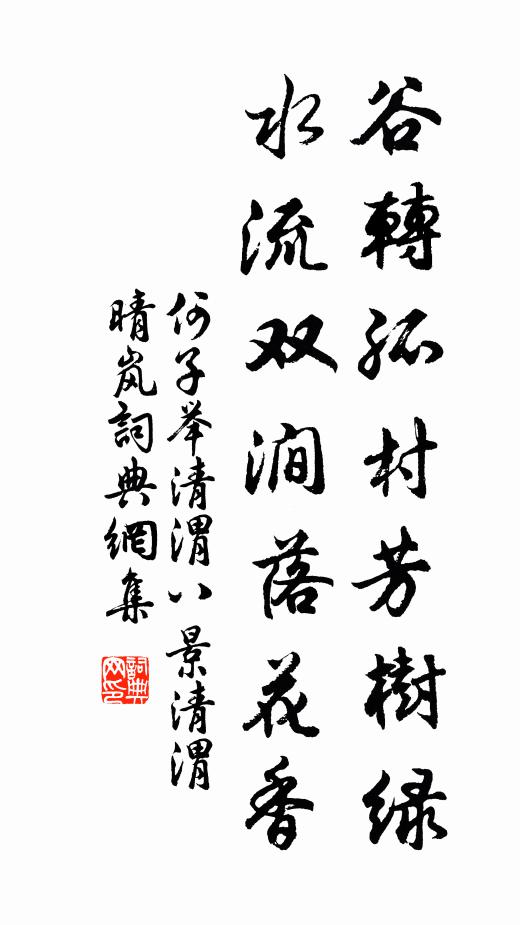 谷轉孤村芳樹緑
水流双澗落花香
何子举清渭八景清渭
晴岚詞典網集
詞典网印